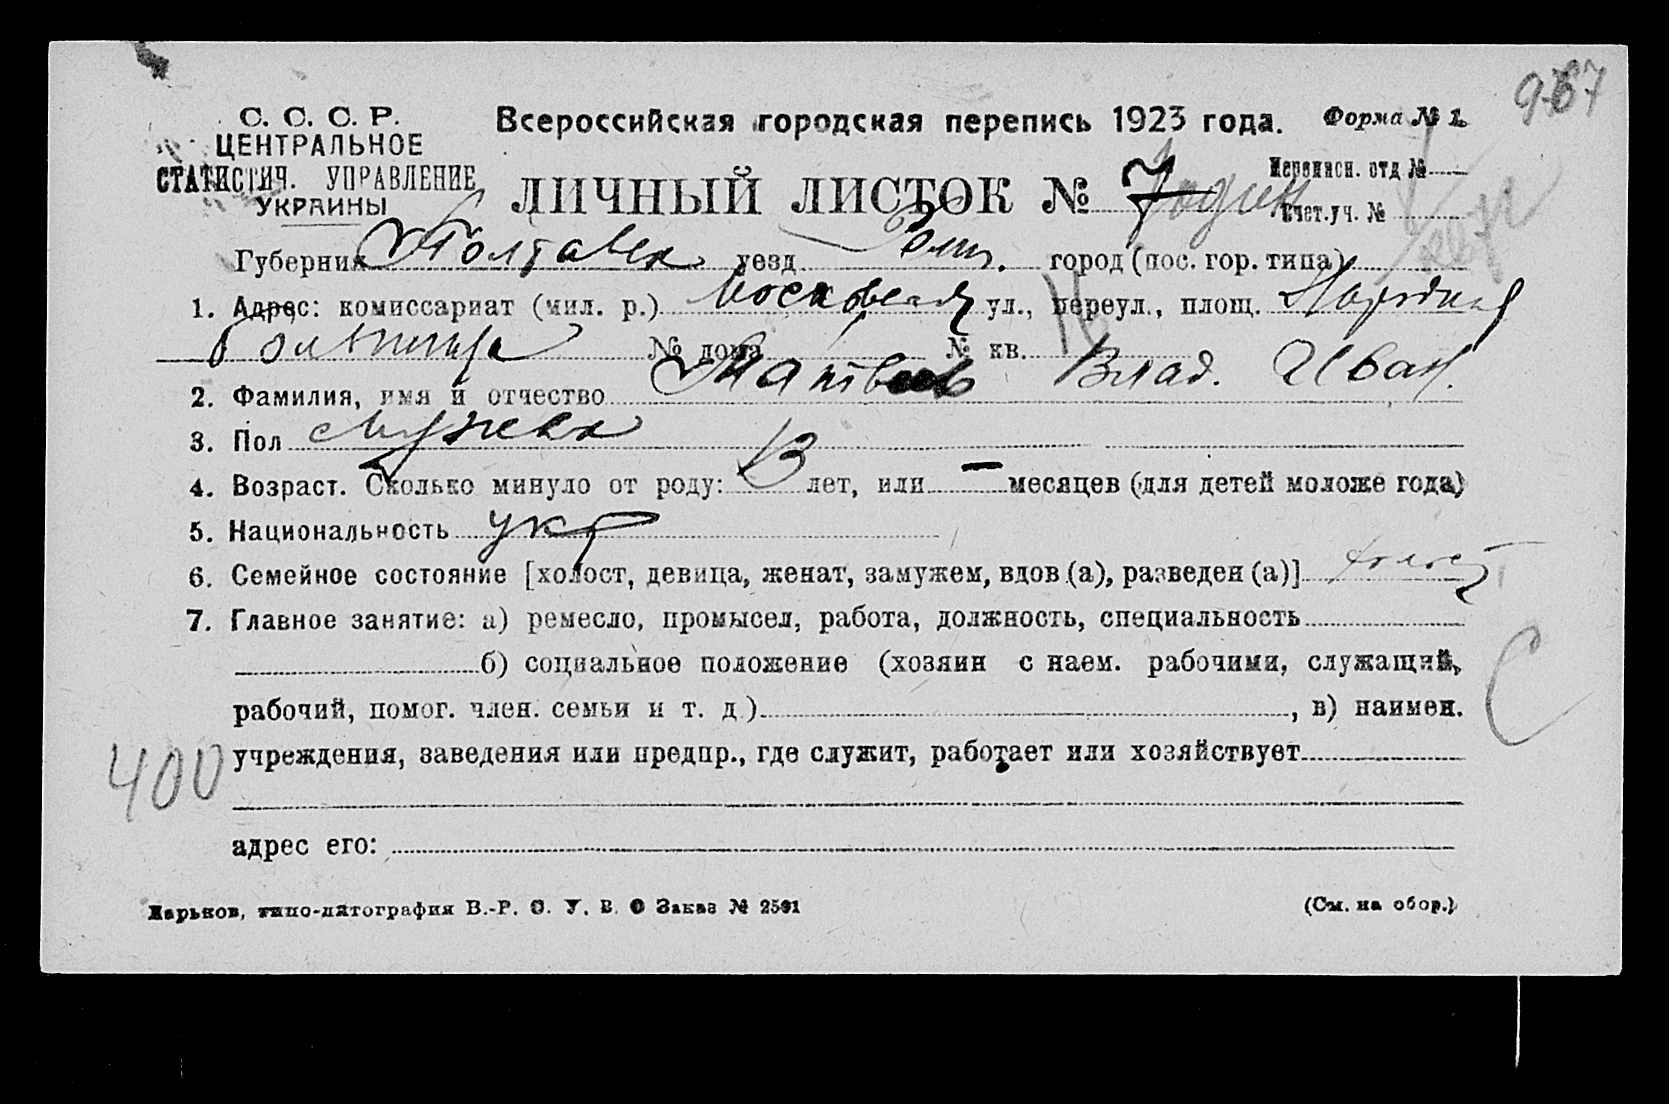 967
С. С. С. Р.
ЦЕНТРАЛЬНОЕ
СТАТИСТИЧ. УПРАВЛЕНИЕ
УКРАИНЫ
Всероссийская городская перепись 1923 года. Форма № 1.
ЛИЧНЫЙ ЛИСТОК № 7 один
Переписн. отд №
Счет.уч. №
Губерния Полтавск уезд Ромн. город (пос. гор. типа)
1. Адрес: комиссариат (мил. р.) Московская ул., переул., площ. Народная
больница № дома № кв.
2. Фамилия, имя и отчество Матвеев Влад. Иван.
3. Пол мужск
4. Возраст. Сколько минуло от роду: 13 лет, или — месяцев (для детей моложе года)
5. Национальность укр
6. Семейное состояние [холост, девица, женат, замужем, вдов (а), разведен (а)] холост
7. Главное занятие: а) ремесло, промысел, работа, должность, специальность
б) социальное положение (хозяин с наем. рабочими, служащий,
рабочий, помог. член. семьи и т. д.) , в) наимен.
учреждения, заведения или предпр., где служит, работает или хозяйствует
С
400
адрес его:
Харьков, типо-литография В.-Р. О. У. В. О Заказ № 2591 (См. на обор.)